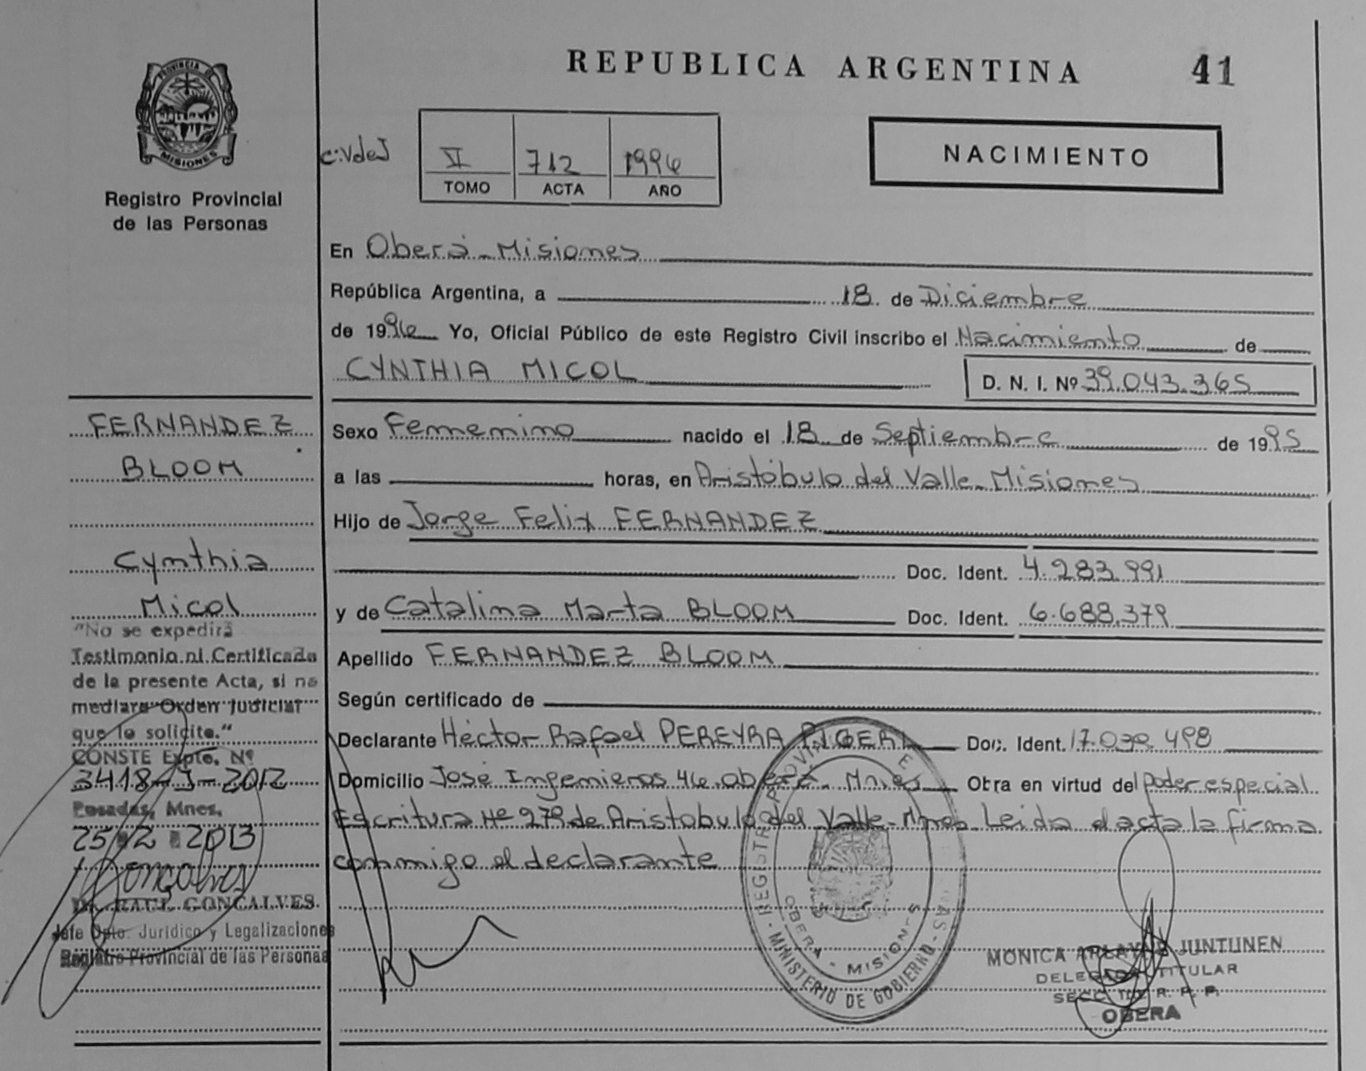 REPUBLICA ARGENTINA 41
PROVINCIA DE
MISIONES
Registro Provincial
de las Personas
VI 712 1996
TOMO ACTA AÑO
NACIMIENTO
En Oberá - Misiones
República Argentina, a 18 de Diciembre
de 1996 Yo, Oficial Público de este Registro Civil inscribo el Nacimiento de
CYNTHIA MICOL D. N. I. Nº 39.043.365
FERNANDEZ
BLOOM
Cynthia
Micol
Sexo Femenino nacido el 18 de Septiembre de 1995
a las horas, en Aristóbulo del Valle - Misiones
Hijo de Jorge Felix FERNANDEZ
Doc. Ident. 4.283.991
y de Catalina Marta BLOOM Doc. Ident. 6.688.379
Apellido FERNANDEZ BLOOM
Según certificado de
Declarante Héctor Rafael PEREYRA Doc. Ident. 17.039.498
Domicilio José Ingenieros 46. Oberá - Mnes Obra en virtud del poder especial
Escritura Nº 279 de Aristobulo del Valle - Mnes Leida el acta la firma
conmigo el declarante
"No se expedirá
Testimonio ni Certificado
de la presente Acta, si no
mediara Orden Judicial
que lo solicite."
CONSTE Expte. Nº
3418-J-2012
Posadas, Mnes,
25 2 2013
Dr. RAUL GONCALVES
Jefe Dpto. Jurídico y Legalizaciones
Registro Provincial de las Personas
OBERA - MISIONES
MINISTERIO DE GOBIERNO
MONICA JUNTUNEN
DELEGADA TITULAR
R. P. P.
OBERA